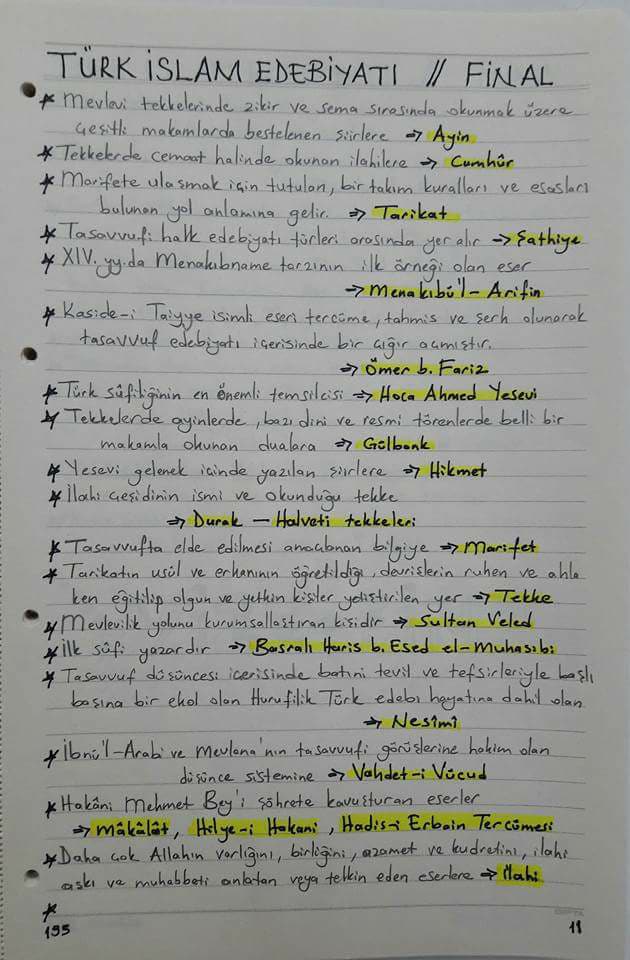 TÜRK İSLAM EDEBİYATI // FİNAL
* Mevlevi tekkelerinde zikir ve sema sırasında okunmak üzere
çeşitli makamlarda bestelenen şiirlere ⇒ Ayin
* Tekkelerde cemaat halinde okunan ilahilere ⇒ Cumhûr
* Marifete ulaşmak için tutulan, bir takım kuralları ve esasları
bulunan yol anlamına gelir. ⇒ Tarikat
* Tasavvufi halk edebiyatı türleri arasında yer alır ⇒ Şathiye
* XIV. yy.da Menakıbname tarzının ilk örneği olan eser
⇒ Menakıbü'l-Arifin
* Kaside-i Taiyye isimli eseri tercüme, tahmis ve şerh olunarak
tasavvuf edebiyatı içerisinde bir çığır açmıştır.
⇒ Ömer b. Fariz
* Türk sûfiliğinin en önemli temsilcisi ⇒ Hoca Ahmed Yesevi
* Tekkelerde ayinlerde, bazı dini ve resmi törenlerde belli bir
makamla okunan dualara ⇒ Gülbank
* Yesevi gelenek içinde yazılan şiirlere ⇒ Hikmet
* İlahi çeşidinin ismi ve okunduğu tekke
⇒ Durak – Halveti tekkeleri
* Tasavvufta elde edilmesi amaçlanan bilgiye ⇒ Marifet
* Tarikatın usûl ve erkanının öğretildiği, devrişlerin ruhen ve ahla
ken eğitilip olgun ve yetkin kişiler yetiştirilen yer ⇒ Tekke
* Mevlevilik yolunu kurumsallaştıran kişidir ⇒ Sultan Veled
* İlk sûfi yazardır ⇒ Basralı Haris b. Esed el-Muhasibi
* Tasavvuf düşüncesi içerisinde batıni tevil ve tefsirleriyle başlı
başına bir ekol olan Hurufilik Türk edebi hayatına dahil olan
⇒ Nesîmî
* İbnü'l-Arabi ve Mevlana'nın tasavvufi görüşlerine hakim olan
düşünce sistemine ⇒ Vahdet-i Vücud
* Hakâni Mehmet Bey'i şöhrete kavuşturan eserler
⇒ mâkâlât, Hilye-i Hakani, Hadis-i Erbain Tercümesi
* Daha çok Allahın varlığını, birliğini, azamet ve kudretini, ilahi
aşkı ve muhabbeti anlatan veya telkin eden eserlere ⇒ İlahi
*
195 11